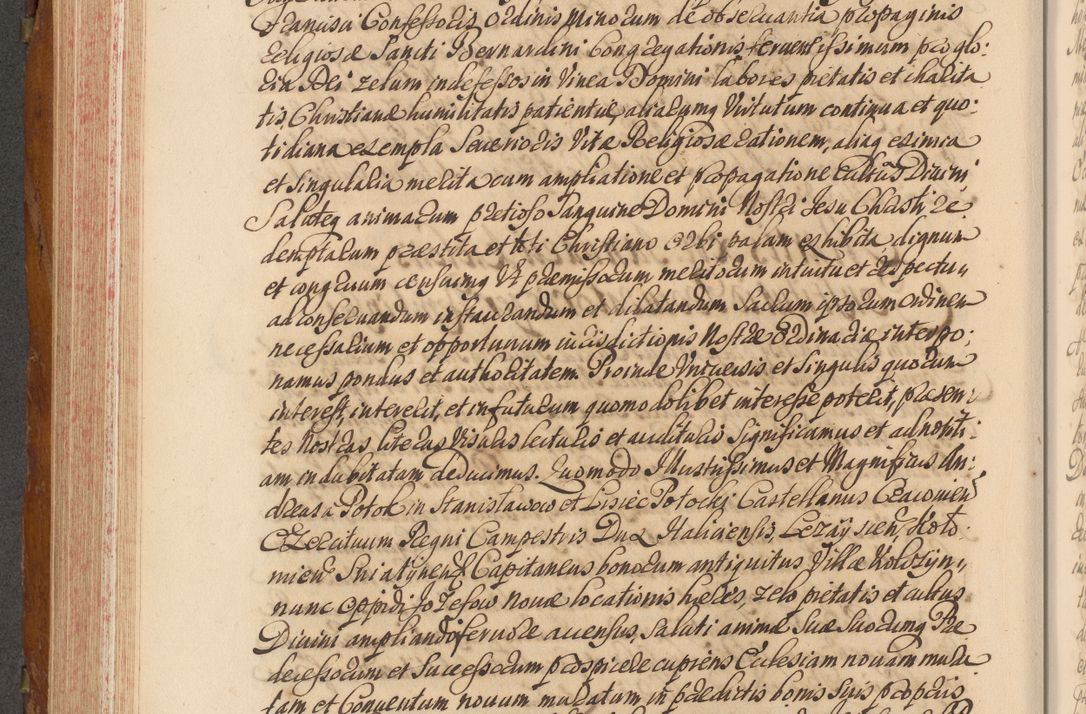 Francisci Confessoris Ordinis Minorum de observantia propaginis
religiosæ Sancti Bernardini Congregationis ferventissimum pro glo:
ria Dei zelum indefessos in Vinea Domini labores pietatis et charita
tis Christianæ humilitatis patientiæ, aliarumq Virtutum continua et quo:
tidiana exempla Severioris Vitæ Religiosæ rationem, aliaq eximia
et singularia merita cum ampliatione et propagatione Cultus Divini
Saluteq animarum pretioso Sanguine Domini Nostri Jesu Christi re
demptarum præstita et toti Christiano Orbi palam exhibita dignum
et congruum censuimq Vt præmissorum meritorum intuitu et respectu,,
ad conservandum instaurandum et dilatandum Sacrum ipsorum Ordinem
necessarium et opportunum iurisdictionis Nostræ Ordinariæ interpo:
namus pondus et authoritatem. Proinde Universis et singulis quorum
interest, intererit, et in futurum quomodolibet interesse poterit, præsen:
tes Nostras literas Visuris lecturis et audituris significamus et ad notiti:
am indubitatam deducimus. Quomodo Illustrissimus et Magnificus An:
dreas a Potok in Stanisławow et Lisiec Potocki Castellanus Cracovien
Exercituum Regni Campestris Dux Haliciensis, Leżaÿscien, Koło:
mien Sniatynen Capitaneus bonorum antiquitus Villæ Kolszyn,,
nunc oppidi Jozefow novæ locationis hæres, zelo pietatis et cultus
Divini ampliandi fervore accensus, saluti animæ suæ suorumq Præ
decessorum et Successorum prospicere cupiens Ecclesiam novam mura
tam et Conventum novum muratum in prædictis bonis suis propriis